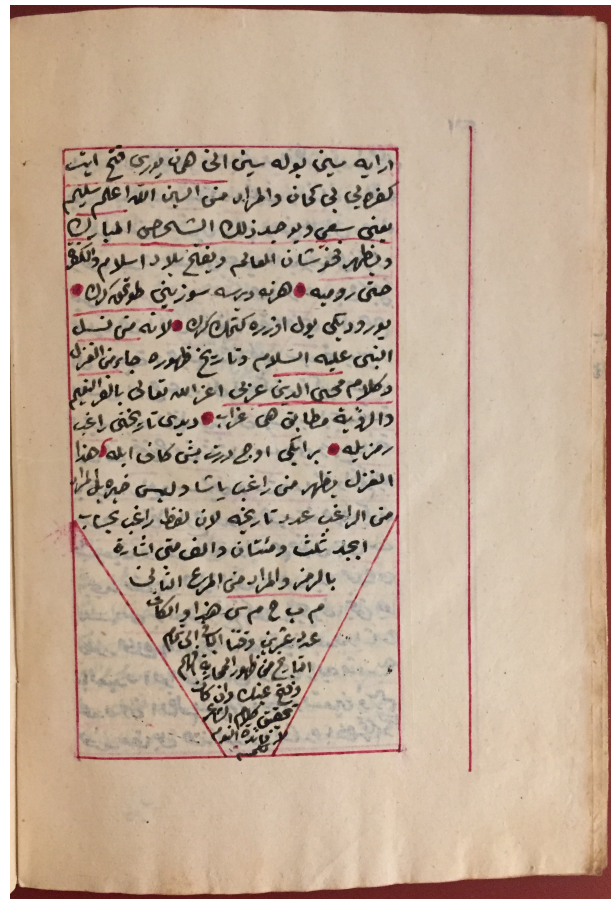 ارايه سين بوله سين الى همان يورى فتح ايت
كفره يى بى كمان والمراد من السين الله اعلم سليم
يعنى سعى ويوجد ذلك الشخص المبارك
ويظهر شان العالم ويفتح بلاد اسلام والكفره
حتى روميه هر نه درسه سوزينى طوتمق كرك
يورودیكى يول اوزره كتمك كرك لانه من نسل
النبى عليه السلام وتاريخ ظهوره جاء من الغزل
وكلام محيى الدين عربى اعز الله تعالى بالفو النعيم
والرؤية مطابق هى غراب ديدى تاريخنى راغب
رمزيله بر ايكى اوچ درت بش كاف ايله هذا
الغزل يظهر من راغب پاشا وليس خبره بل المراد
من الراغب عدد تاريخه لان لفظ راغب بحساب
ابجد ثلث ومئتان والف متى اشارة
بالرمز والمراد من المصرع الثانى
م ب ح م س هذا والكاف
عدد عشرين وقتا الى تمام
من ظهور المحاربة
وقع عندك وان كان
تحقيق كلام الشاعر